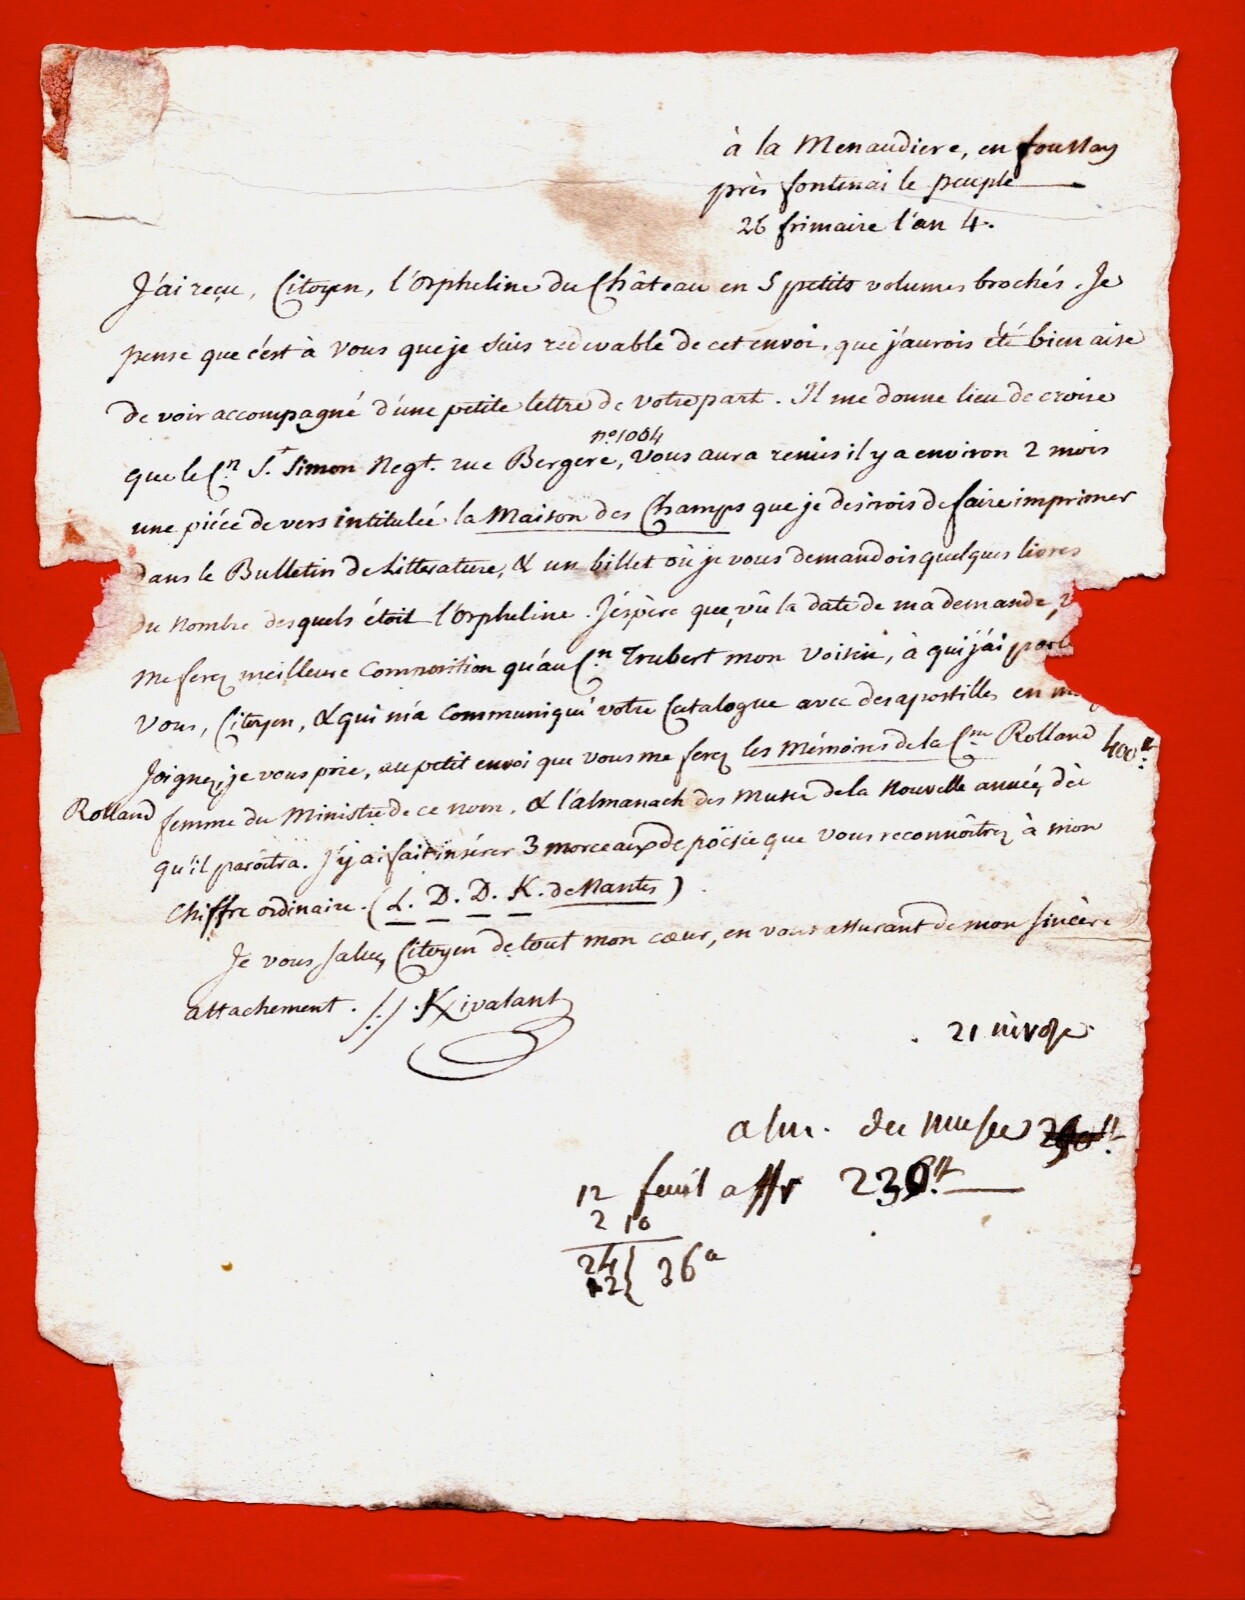 à la Menaudiere, en foussay
près fontenai le peuple
26 frimaire l'an 4.
J'ai reçu, Citoyen, l'orpheline du Château en 5 petits volumes brochés. Je
pense que c'est à vous que je suis redevable de cet envoi, que j'aurois été bien aise
de voir accompagné d'une petite lettre de votre part. Il me donne lieu de croire
n.o 1004
que le C.n S.t Simon Negt. rue Bergere, vous aura remis il y a environ 2 mois
une piéce de vers intitulée la Maison des Champs que je desirois de faire imprimer
dans le Bulletin de Litterature, & un billet où je vous demandois quelques livres
du nombre desquels étoit l'orpheline. J'éspère que, vû la date de ma demande,
me ferez meilleure composition qu'au C.n Trubert mon voisin, à qui j'ai
vous, Citoyen, & qui m'a communiqué votre Catalogue avec des apostilles en
Joignez, je vous prie, au petit envoi que vous me ferez les Mémoires de la C.ne Rolland 400.tt
Rolland femme du Ministre de ce nom, & l'almanach des Muses de la Nouvelle année, dès
qu'il paroîtra. J'y ai fait insérer 3 morceaux de poësie que vous reconnoîtrez à mon
Chiffre ordinaire. (L. D. D. K. de Nantes).
Je vous salue, Citoyen de tout mon cœur, en vous assurant de mon sincère
attachement. Kivalant
21 nivose
alm. des muses
12 feuil aff 230.tt
2 10
24 } 36 a
12